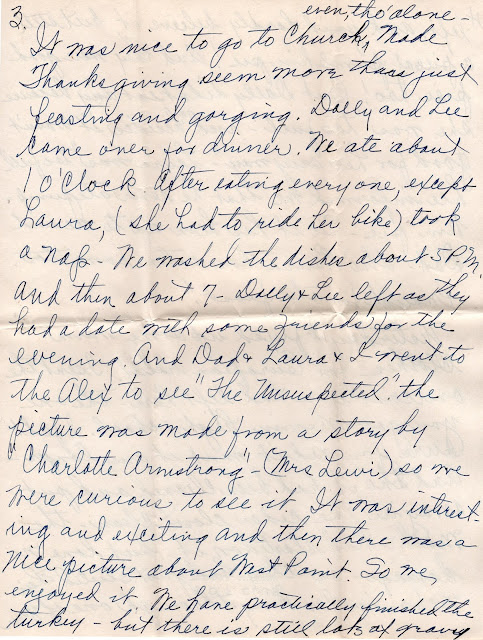 3.
even, tho' alone -
It was nice to go to Church, Made
Thanksgiving seem more than just
feasting and gorging. Dolly and Lee
came over for dinner. We ate about
1 O'Clock. After eating every one, except
Laura, (she had to ride her bike) took
a nap - We washed the dishes about 5 P.M.
And then about 7 - Dolly & Lee left as they
had a date with some friends for the
evening. And Dad & Laura & I went to
the Alex to see "The Unsuspected". the
picture was made from a story by
"Charlotte Armstrong" - (Mrs Lewi) so we
were curious to see it. It was interest-
ing and exciting and then there was a
nice picture about West Point. So we
enjoyed it. We have practically finished the
turkey - but there is still lots of gravy